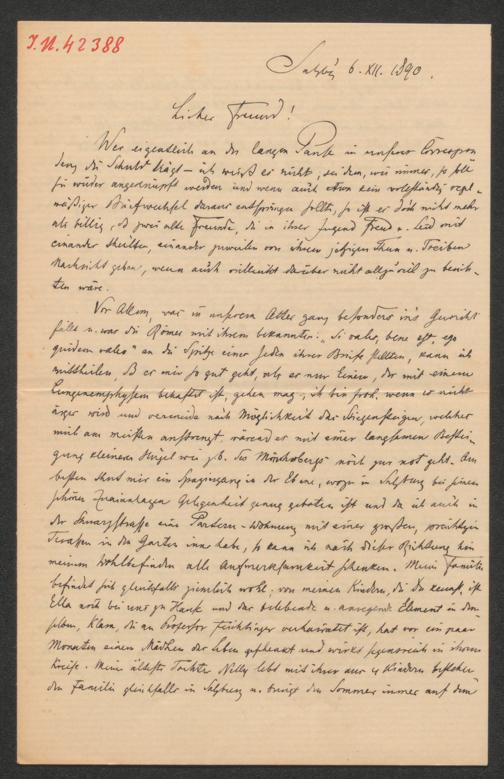 I.N. 42388
Salzbg 6. XII. 1890.
Lieber Freund!
Wer eigentlich an der langen Pause in unserer Correspon
denz die Schuld trägt – ich weiß es nicht; sei dem, wie immer, so soll
sie wieder angeknüpft werden und wenn auch etwa kein vollständig regel-
mäßiger Briefwechsel daraus entspringen sollte, so ist es doch nicht mehr
als billig, daß zwei alte Freunde, die in ihrer Jugend Freud u. Leid mit
einander theilten, einander zuweilen von ihrem jetzigen Thun u. Treiben
Nachricht geben, wenn auch vielleicht darüber nicht allzuviel zu berich-
ten wäre.
Vor Allem, was in unserem Alter ganz besonders in's Gewicht
fällt u. was die Römer mit ihrem bekannten: „Si vales, bene est, ego
quidem valeo" an die Spitze einer jeden ihrer Briefe stellten, kann ich
mittheilen, daß es mir so gut geht, als es nur Einem, der mit einem
Lungenemphysem behaftet ist, gehen mag; ich bin froh, wenn es nicht
ärger wird und vermeide nach Möglichkeit das Stiegensteigen, welches
mich am meisten anstrengt, während es mit einer langsamen Bestei-
gung kleinerer Hügel wie z.B. des Mönchsbergs noch zur Not geht. Am
besten thut mir ein Spaziergang in der Ebene, wozu in Salzburg bei seinen
schönen Promenaden Gelegenheit genug geboten ist und da ich auch in
der Schwarzstraße eine Parterre-Wohnung mit einer großen, prächtigen
Terasse in den Garten inne habe, so kann ich nach dieser Richtung hin
meinem Wohlbefinden alle Aufmerksamkeit schenken. Meine Familie
befindet sich gleichfalls ziemlich wohl; von meinen Kindern, die Du kennst, ist
Ella noch bei uns zu Hause und das belebende u. anregende Element in dem
selben, Klara, die an Professor verheiratet ist, hat vor ein paar
Monaten einem Mädchen das Leben geschenkt und wirkt segensreich in ihrem
Kreise. Meine älteste Tochter Nelly lebt mit ihrer aus 4 Kindern bestehen
den Familie gleichfalls in Salzburg u. bringt den Sommer immer auf dem